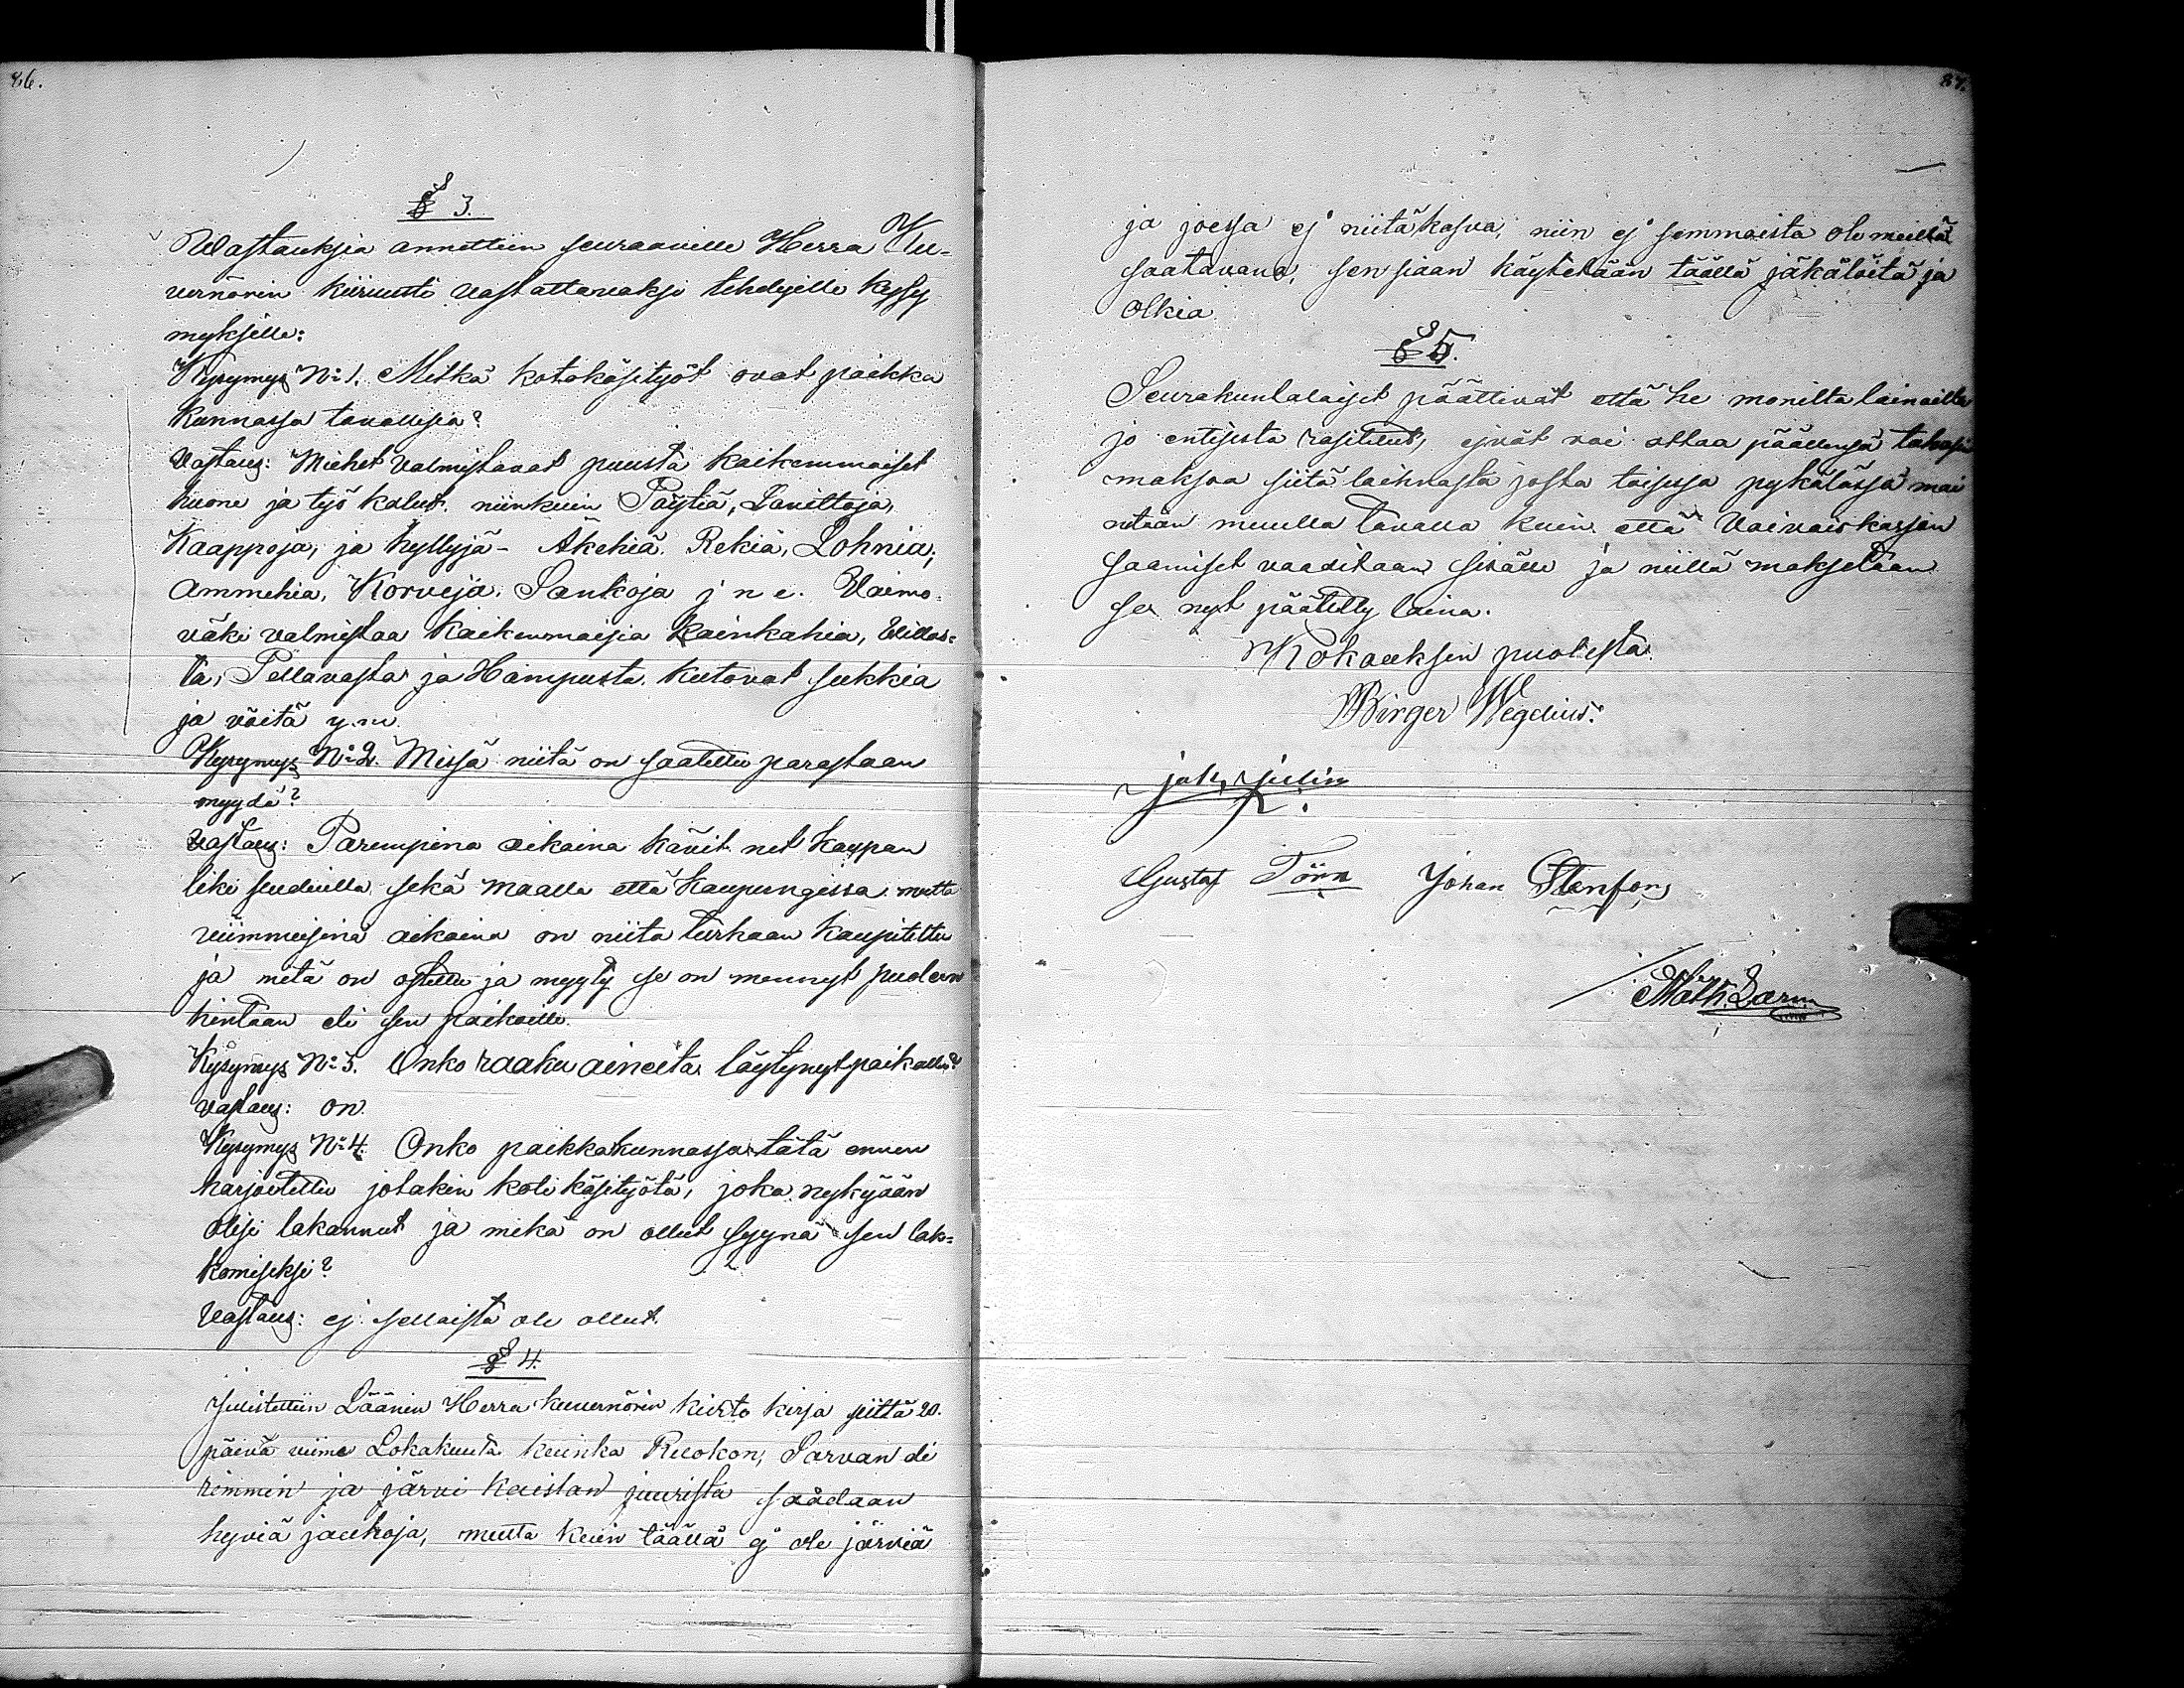 86.
§ 3.
Wastauksia annettiin seuraaville Herra Ku-
vernörin kiiruusti vastattavaksi tehdyille kysy
myksille:
Kysymys No 1. Mitkä kotokäsityöt ovat paikka
kunnassa tavallisia?
Vastaus: Miehet valmistavat puusta kaikenmaiset
huone ja työ kalut, niinkuin Pöytiä, Laviltoja,
Kaappoja, ja hyllyjä - Äkehiä. Rekiä, Lohnia,
Ammehia, Korveja. Sankoja j n e. Vaimo-
väki valmistaa kaikenmaisia kainkahia, Villas-
ta, Pellavasta ja Hampusta. kutovat sukkia
ja vöitä y.m.
Kysymys No 2. Missä niitä on saatettu parastaan
myydä?
Vastaus: Parempina aikaina kävit net kaupan
liki seuduilla sekä maalla että kaupungissa mutta
viimmeisinä aikaina on niitä turhaan kaupitettu
ja mitä on ostettu ja myyty se on mennyt puoleen
hintaan eli sen paikoille.
Kysymys No 3. Onko raaku aineita löytynyt paikalla?
Vastaus: on.
Kysymys No 4. Onko paikkakunnassa tätä ennen
harjoitettu jotakin koti käsityötä, joka nykyään
olisi lakannut ja mikä on ollut syynä sen lak-
komiseksi?
Vastaus: ej sellaista ole ollut.
§ 4.
Julistettiin Läänin Herra kuvernörin kierto kirja siittä 20.
päivä viime Lokakuuta kuinka Ruokon, Sarvan eli
rimmin ja järvi kaislan juurista saadaan
hyviä jauhoja, mutta kuin täällä ej ole järviä
87.
ja joessa ej niitä kasva, niin ej semmoista ole meillä
saatavana, sen siaan käytetään täällä jäkälöitä ja
olkia.
§ 5.
Seurakuntalaiset päättivät että he monilta lainoilta
jo entisestä rasitetut, ejvät voi ottaa päällensä takasi
maksaa siitä laihnasta josta toisessa pykälässä mai
nitaan muulla tavalla kuin että Vaivaiskassan
saamiset vaaditaan sisälle ja niillä maksetaan
se nyt päätetty laina.
Kokouksen puolesta
Birger Wegelius.
Gustaf Törn Johan Stenfors